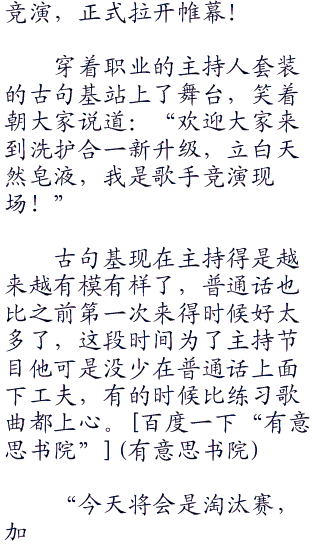 竞演，正式拉开帷幕！
穿着职业的主持人套装
的古句基站上了舞台，笑着
朝大家说道：“欢迎大家来
到洗护合一新升级，立白天
然皂液，我是歌手竞演现
场！”
古句基现在主持得是越
来越有模有样了，普通话也
比之前第一次来得时候好太
多了，这段时间为了主持节
目他可是没少在普通话上面
下工夫，有的时候比练习歌
曲都上心。[百度一下“有意
思书院”](有意思书院)
“今天将会是淘汰赛，
加